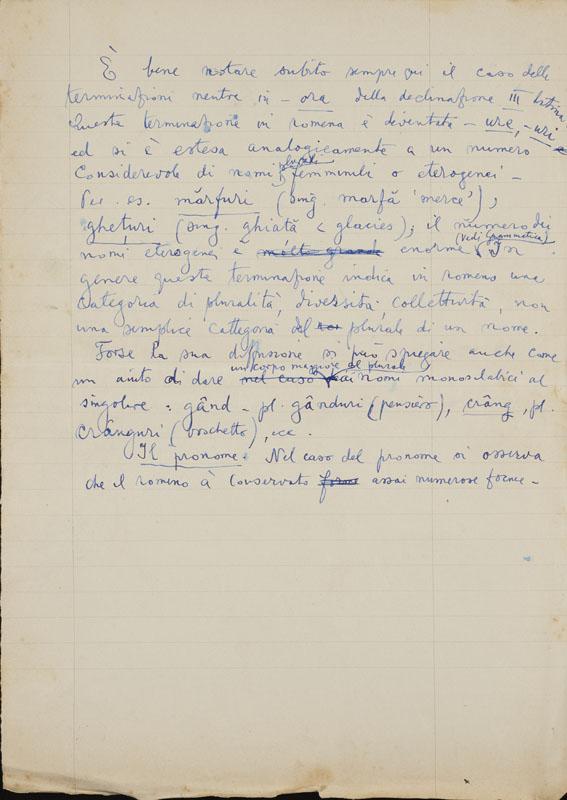 È bene notare subito sempre qui il caso delle
terminazioni neutre in -ora della declinazione III latina
Questa terminazione in romena è diventata -ure, -uri e
ed si è estesa analogicamente a un numero
considerevole di nomi plurali femminili o eterogenei -
Per. es. mărfuri (sing. marfă 'merce'),
ghețuri (sing. ghiată < glacies); il numero dei
nomi eterogenei è molto grande enorme (Vedi Grammatica). In
genere queste terminazione indica in romeno una
categoria di pluralità, diversità, collettività, non
una semplice cattegoria del plurale di un nome.
Forse la sua diffusione si può spiegare anche come
un aiuto di dare nel caso un corpo maggiore al plurale ai nomi monosilabici al
singolare: gând - pl. gânduri (pensiero), crâng, pl.
crânguri (boschetto), ecc.
Il pronome: Nel caso del pronome si osserva
che il romeno à conservato forme assai numerose forme -